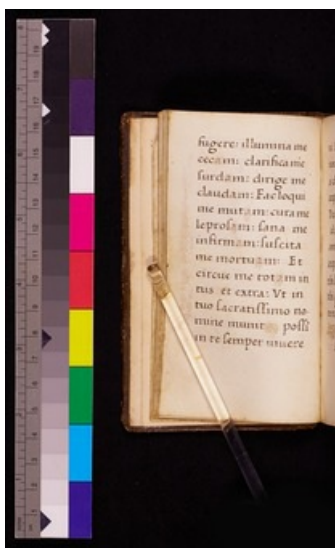 fugere: illumina me
cecam: clarifica me
surdam: dirige me
claudam: Fac loqui
me mutam: cura me
leprosam: sana me
infirmam: suscita
me mortuam: Et
circue me totam in
tus et extra: Vt in
tuo sacratissimo no
mine munit possi
in te semper uiuere